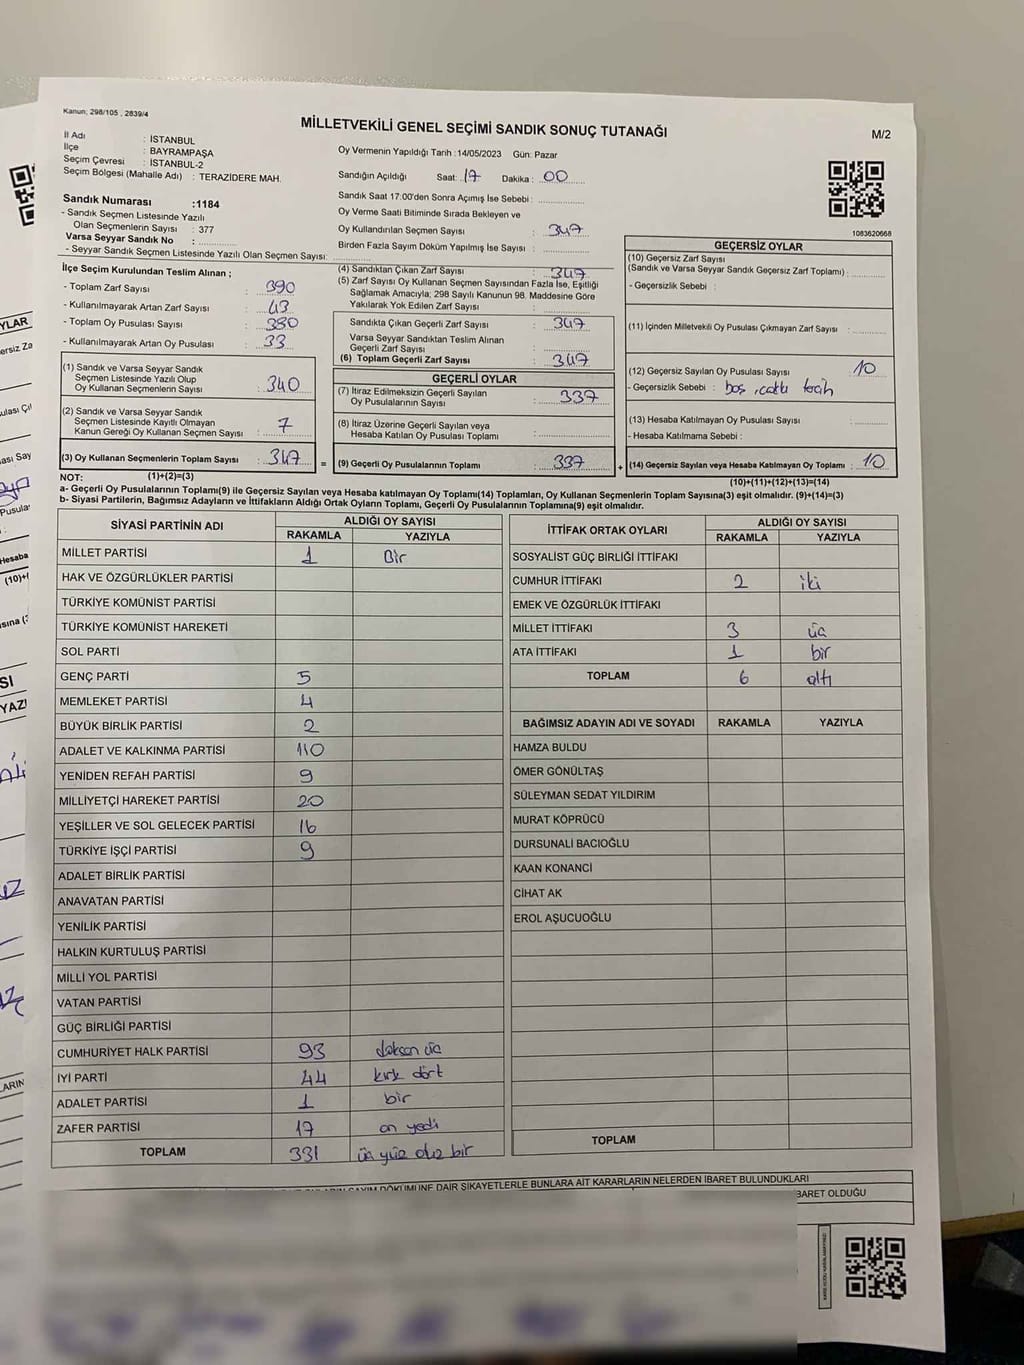 Kanun; 298/105 , 2839/4
MİLLETVEKİLİ GENEL SEÇİMİ SANDIK SONUÇ TUTANAĞI
M/2
İl Adı : İSTANBUL
İlçe : BAYRAMPAŞA
Seçim Çevresi : İSTANBUL-2
Seçim Bölgesi (Mahalle Adı) : TERAZİDERE MAH.
Sandık Numarası :1184
- Sandık Seçmen Listesinde Yazılı
Olan Seçmenlerin Sayısı : 377
Varsa Seyyar Sandık No :
- Seyyar Sandık Seçmen Listesinde Yazılı Olan Seçmen Sayısı:
Oy Vermenin Yapıldığı Tarih :14/05/2023 Gün: Pazar
Sandığın Açıldığı Saat: 17 Dakika : 00
Sandık Saat 17:00'den Sonra Açımış İse Sebebi :
Oy Verme Saati Bitiminde Sırada Bekleyen ve
Oy Kullandırılan Seçmen Sayısı : 347
Birden Fazla Sayım Döküm Yapılmış İse Sayısı :
1083620668
İlçe Seçim Kurulundan Teslim Alınan ;
- Toplam Zarf Sayısı : 390
- Kullanılmayarak Artan Zarf Sayısı : 43
- Toplam Oy Pusulası Sayısı : 380
- Kullanılmayarak Artan Oy Pusulası : 33
(1) Sandık ve Varsa Seyyar Sandık
Seçmen Listesinde Yazılı Olup
Oy Kullanan Seçmenlerin Sayısı : 340
(2) Sandık ve Varsa Seyyar Sandık
Seçmen Listesinde Kayıtlı Olmayan
Kanun Gereği Oy Kullanan Seçmen Sayısı : 7
(3) Oy Kullanan Seçmenlerin Toplam Sayısı : 347
(4) Sandıktan Çıkan Zarf Sayısı : 347
(5) Zarf Sayısı Oy Kullanan Seçmen Sayısından Fazla İse, Eşitliği
Sağlamak Amacıyla; 298 Sayılı Kanunun 98. Maddesine Göre
Yakılarak Yok Edilen Zarf Sayısı :
Sandıkta Çıkan Geçerli Zarf Sayısı : 347
Varsa Seyyar Sandıktan Teslim Alınan
Geçerli Zarf Sayısı :
(6) Toplam Geçerli Zarf Sayısı : 347
GEÇERLİ OYLAR
(7) İtiraz Edilmeksizin Geçerli Sayılan
Oy Pusulalarının Sayısı : 337
(8) İtiraz Üzerine Geçerli Sayılan veya
Hesaba Katılan Oy Pusulası Toplamı :
= (9) Geçerli Oy Pusulalarının Toplamı : 337
GEÇERSİZ OYLAR
(10) Geçersiz Zarf Sayısı
(Sandık ve Varsa Seyyar Sandık Geçersiz Zarf Toplamı) :
- Geçersizlik Sebebi :
(11) İçinden Milletvekili Oy Pusulası Çıkmayan Zarf Sayısı :
(12) Geçersiz Sayılan Oy Pusulası Sayısı : 10
- Geçersizlik Sebebi : boş
(13) Hesaba Katılmayan Oy Pusulası Sayısı :
- Hesaba Katılmama Sebebi :
+ (14) Geçersiz Sayılan veya Hesaba Katılmayan Oy Toplamı : 10
NOT: (1)+(2)=(3)
(10)+(11)+(12)+(13)=(14)
a- Geçerli Oy Pusulalarının Toplamı(9) ile Geçersiz Sayılan veya Hesaba katılmayan Oy Toplamı(14) Toplamları, Oy Kullanan Seçmenlerin Toplam Sayısına(3) eşit olmalıdır. (9)+(14)=(3)
b- Siyasi Partilerin, Bağımsız Adayların ve İttifakların Aldığı Ortak Oyların Toplamı, Geçerli Oy Pusulalarının Toplamına(9) eşit olmalıdır.
SİYASİ PARTİNİN ADI
ALDIĞI OY SAYISI
RAKAMLA YAZIYLA
MİLLET PARTİSİ 1 Bir
HAK VE ÖZGÜRLÜKLER PARTİSİ
TÜRKİYE KOMÜNİST PARTİSİ
TÜRKİYE KOMÜNİST HAREKETİ
SOL PARTİ
GENÇ PARTİ 5
MEMLEKET PARTİSİ 4
BÜYÜK BİRLİK PARTİSİ 2
ADALET VE KALKINMA PARTİSİ 110
YENİDEN REFAH PARTİSİ 9
MİLLİYETÇİ HAREKET PARTİSİ 20
YEŞİLLER VE SOL GELECEK PARTİSİ 16
TÜRKİYE İŞÇİ PARTİSİ 9
ADALET BİRLİK PARTİSİ
ANAVATAN PARTİSİ
YENİLİK PARTİSİ
HALKIN KURTULUŞ PARTİSİ
MİLLİ YOL PARTİSİ
VATAN PARTİSİ
GÜÇ BİRLİĞİ PARTİSİ
CUMHURİYET HALK PARTİSİ 93 doksan üç
İYİ PARTİ 44 kırk dört
ADALET PARTİSİ 1 bir
ZAFER PARTİSİ 17 on yedi
TOPLAM 331 üç yüz otuz bir
İTTİFAK ORTAK OYLARI
ALDIĞI OY SAYISI
RAKAMLA YAZIYLA
SOSYALİST GÜÇ BİRLİĞİ İTTİFAKI
CUMHUR İTTİFAKI 2 iki
EMEK VE ÖZGÜRLÜK İTTİFAKI
MİLLET İTTİFAKI 3 üç
ATA İTTİFAKI 1 bir
TOPLAM 6 altı
BAĞIMSIZ ADAYIN ADI VE SOYADI RAKAMLA YAZIYLA
HAMZA BULDU
ÖMER GÖNÜLTAŞ
SÜLEYMAN SEDAT YILDIRIM
MURAT KÖPRÜCÜ
DURSUNALİ BACIOĞLU
KAAN KONANCİ
CİHAT AK
EROL AŞUCUOĞLU
TOPLAM
SAYIM DÖKÜMÜNE DAİR ŞİKAYETLERLE BUNLARA AİT KARARLARIN NELERDEN İBARET BULUNDUKLARI
BARET OLDUĞU